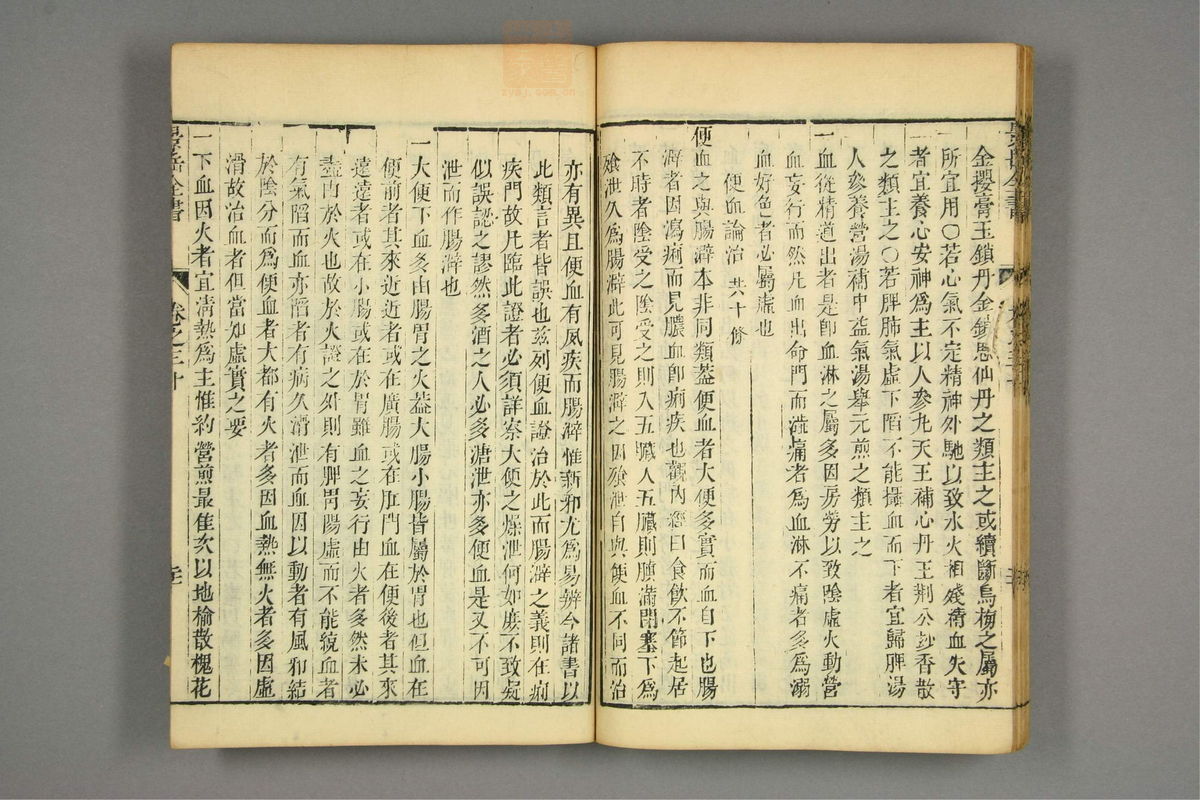 金櫻膏玉鎖丹金鎖思仙丹之類主之或續斷烏梅之屬亦
所宜用○若心氣不定精神外馳以致水火相殘精血失守
者宜養心安神爲主以人參丸天王補心丹王荆公玅香散
之類主之○若脾肺氣虛下陷不能攝血而下者宜歸脾湯
人參養營湯補中益氣湯舉元煎之類主之
一血從精道出者是即血淋之屬多因房勞以致陰虛火動營
血妄行而然凡血出命門而澁痛者爲血淋不痛者多爲溺
血好色者必屬虛也
便血論治 共十條
便血之與腸澼本非同類蓋便血者大便多實而血自下也腸
澼者因瀉痢而見膿血卽痢疾也觀內經曰食飲不節起居
不時者陰受之陰受之則入五臟入五臟則䐜滿閉塞下爲
飧泄久爲腸澼此可見腸澼之因飧泄自與便血不同而治
亦有異且便血有夙疾而腸澼惟新邪尤爲易辨今諸書以
此類言者皆誤也玆列便血證治於此而腸澼之義則在痢
疾門故凡臨此證者必須詳察大便之燥泄何如庶不致疑
似誤認之謬然多酒之人必多溏泄亦多便血是又不可因
泄而作腸澼也
一大便下血多由腸胃之火蓋大腸小腸皆屬於胃也但血在
便前者其來近近者或在廣腸或在肛門血在便後者其來
遠遠者或在小腸或在於胃雖血之妄行由火者多然未必
盡由於火也故於火證之外則有脾胃陽虛而不能統血者
有氣陷而血亦陷者有病久滑泄而血因以動者有風邪結
於陰分而爲便血者大都有火者多因血熱無火者多因虛
滑故治血者但當知虛實之要
一下血因火者宜清熱爲主惟約營煎最佳次以地榆散槐花
景岳全書
卷之三十